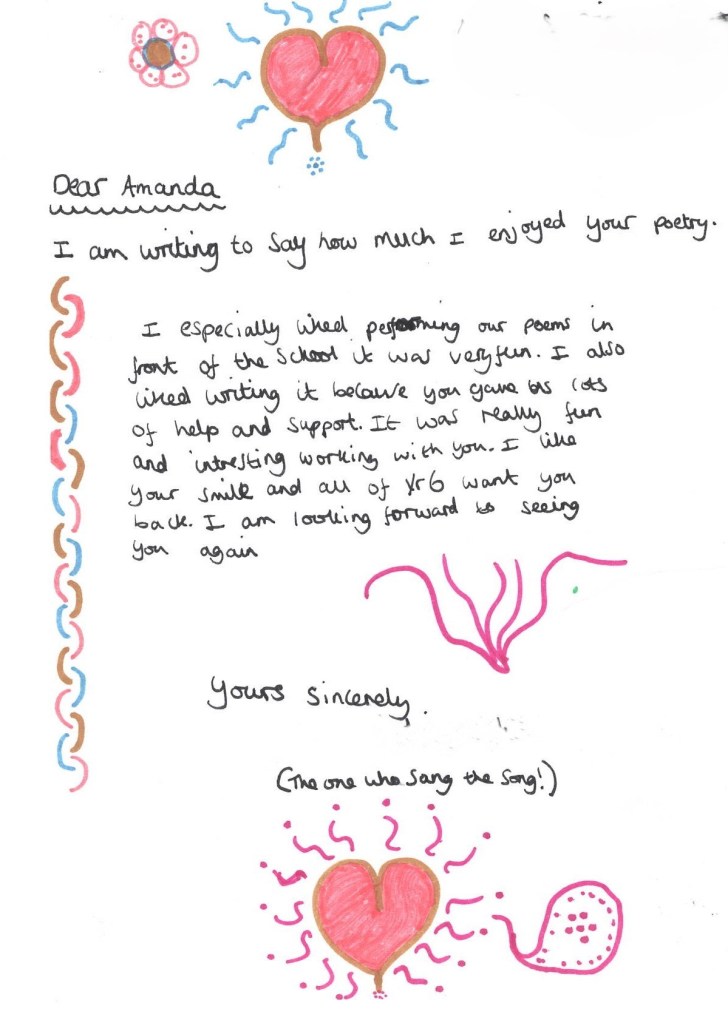 Dear Amanda
I am writing to say how much I enjoyed your poetry.
I especially liked performing our poems in
front of the School it was very fun. I also
liked writing it because you gave us lots
of help and support. It was really fun
and intresting working with you. I like
your smile and all of Yr6 want you
back. I am looking forward to seeing
you again
Yours sincerely.
(The one who sang the song!)